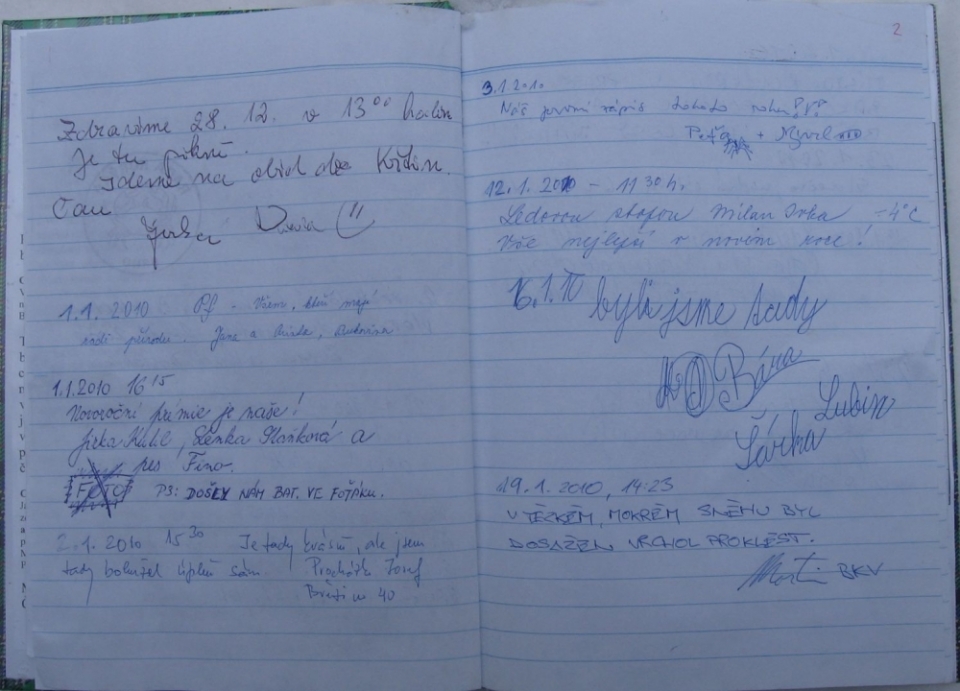 Zdravíme 28. 12. v 13°° hodin
Je tu pěkně.
Jdeme na oběd do
Čau
Jirka
1.1. 2010 Pf - Všem, kteří mají
rádi přírodu. Jana a
1.1.2010 16 15
Novoroční prémie je naše!
Jirka Lenka a
pes Fíno.
FOTO PS: DOŠLY NÁM BAT. VE FOŤÁKU.
2.1. 2010 15 30 Je tady krásně, ale jsem
tady bohužel úplně sám Procházka Josef
40
2
3.1.2010
Náš první zápis tohoto roku!
Péťa +
12.1. 2010 - 11 30 h.
Ledovou stopou Milan -4°C
Vše nejlepší v novém roce!
16.1.10 byli jsme tady
Bára
Lubin
Šárka
19.1. 2010, 14:23
V TĚŽKÉM, MOKRÉM SNĚHU BYL
DOSAŽEN VRCHOL PROKLEST.
Martin BKV